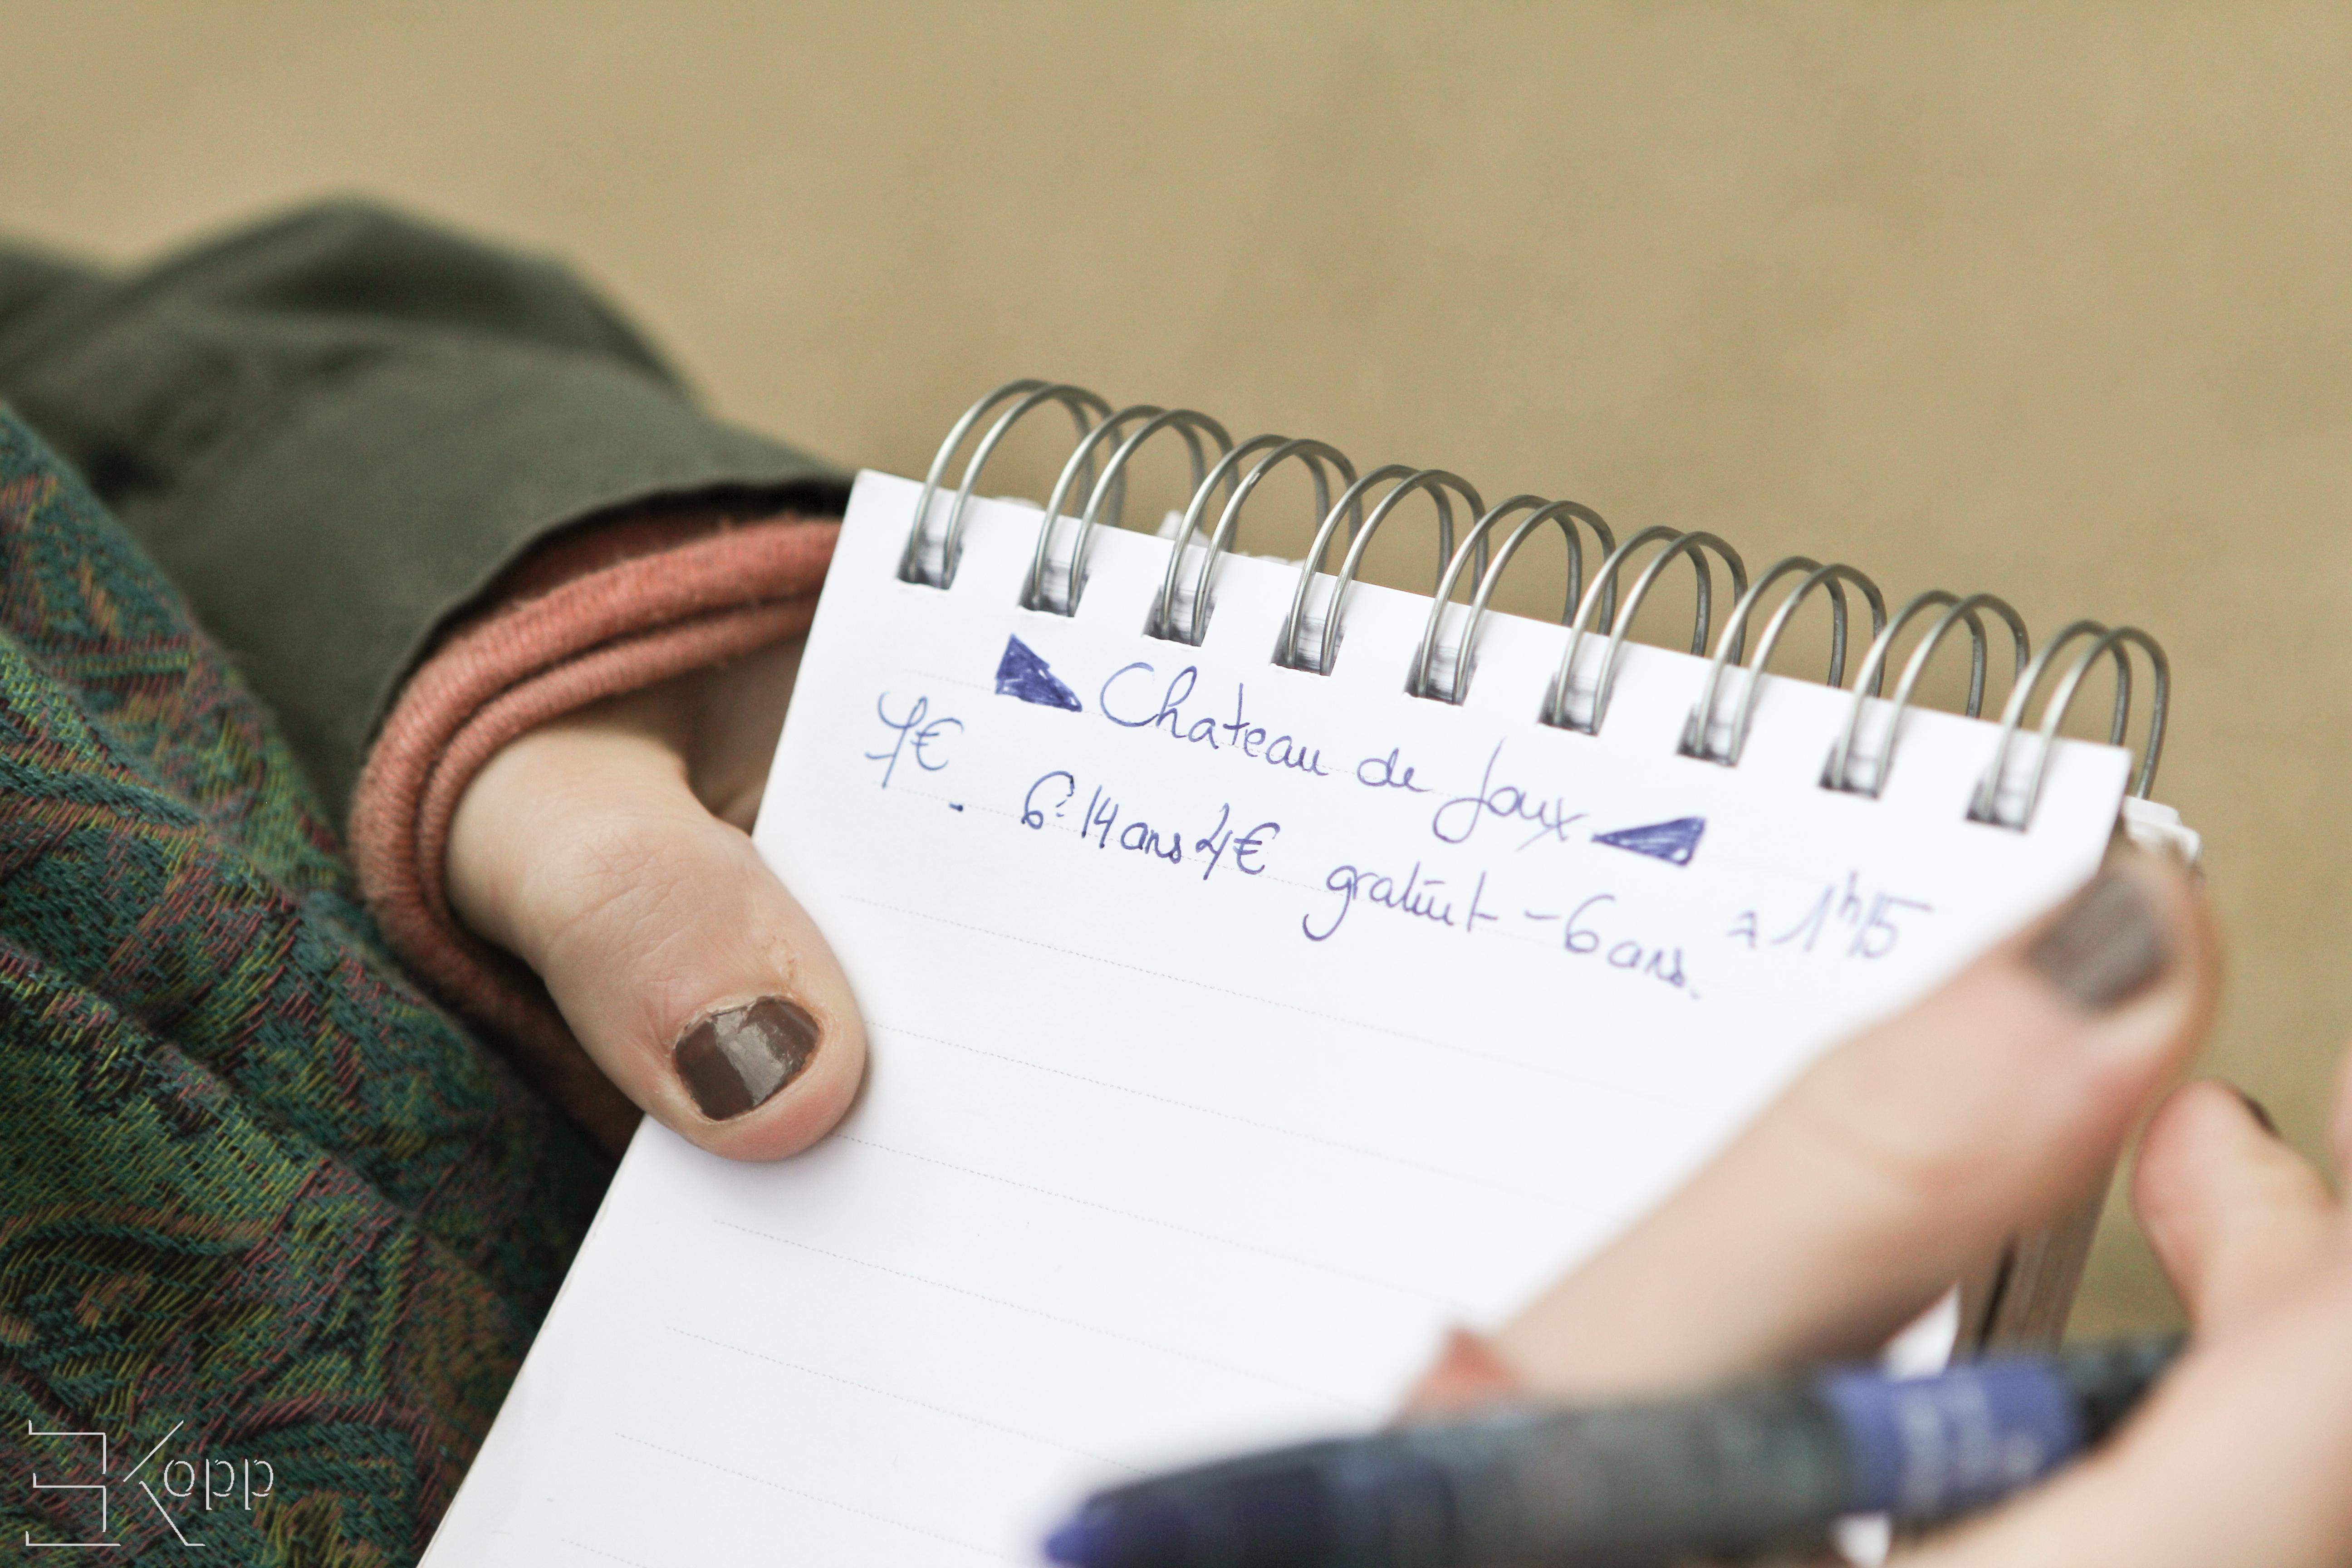 Chateau de Joux
7€ . 6-14 ans 4€ gratuit - 6 ans. ≈ 1h15
Kopp